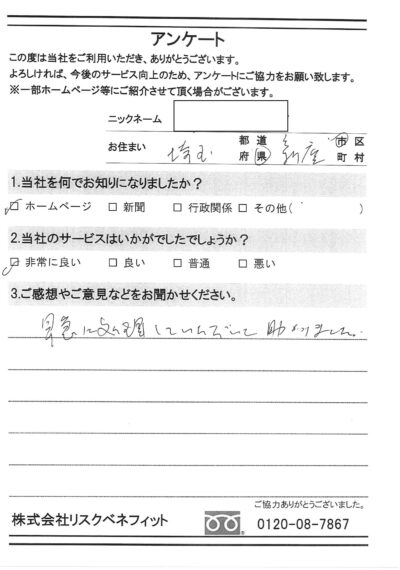 アンケート
この度は当社をご利用いただき、ありがとうございます。
よろしければ、今後のサービス向上のため、アンケートにご協力をお願い致します。
※一部ホームページ等にご紹介させて頂く場合がございます。
ニックネーム
お住まい 埼玉 都道府県 新座 市区町村
1.当社を何でお知りになりましたか?
☑ ホームページ □ 新聞 □ 行政関係 □ その他( )
2.当社のサービスはいかがでしたでしょうか?
☑ 非常に良い □ 良い □ 普通 □ 悪い
3.ご感想やご意見などをお聞かせください。
早急に処理していただいて助かりました。
ご協力ありがとうございました。
株式会社リスクベネフィット 0120-08-7867